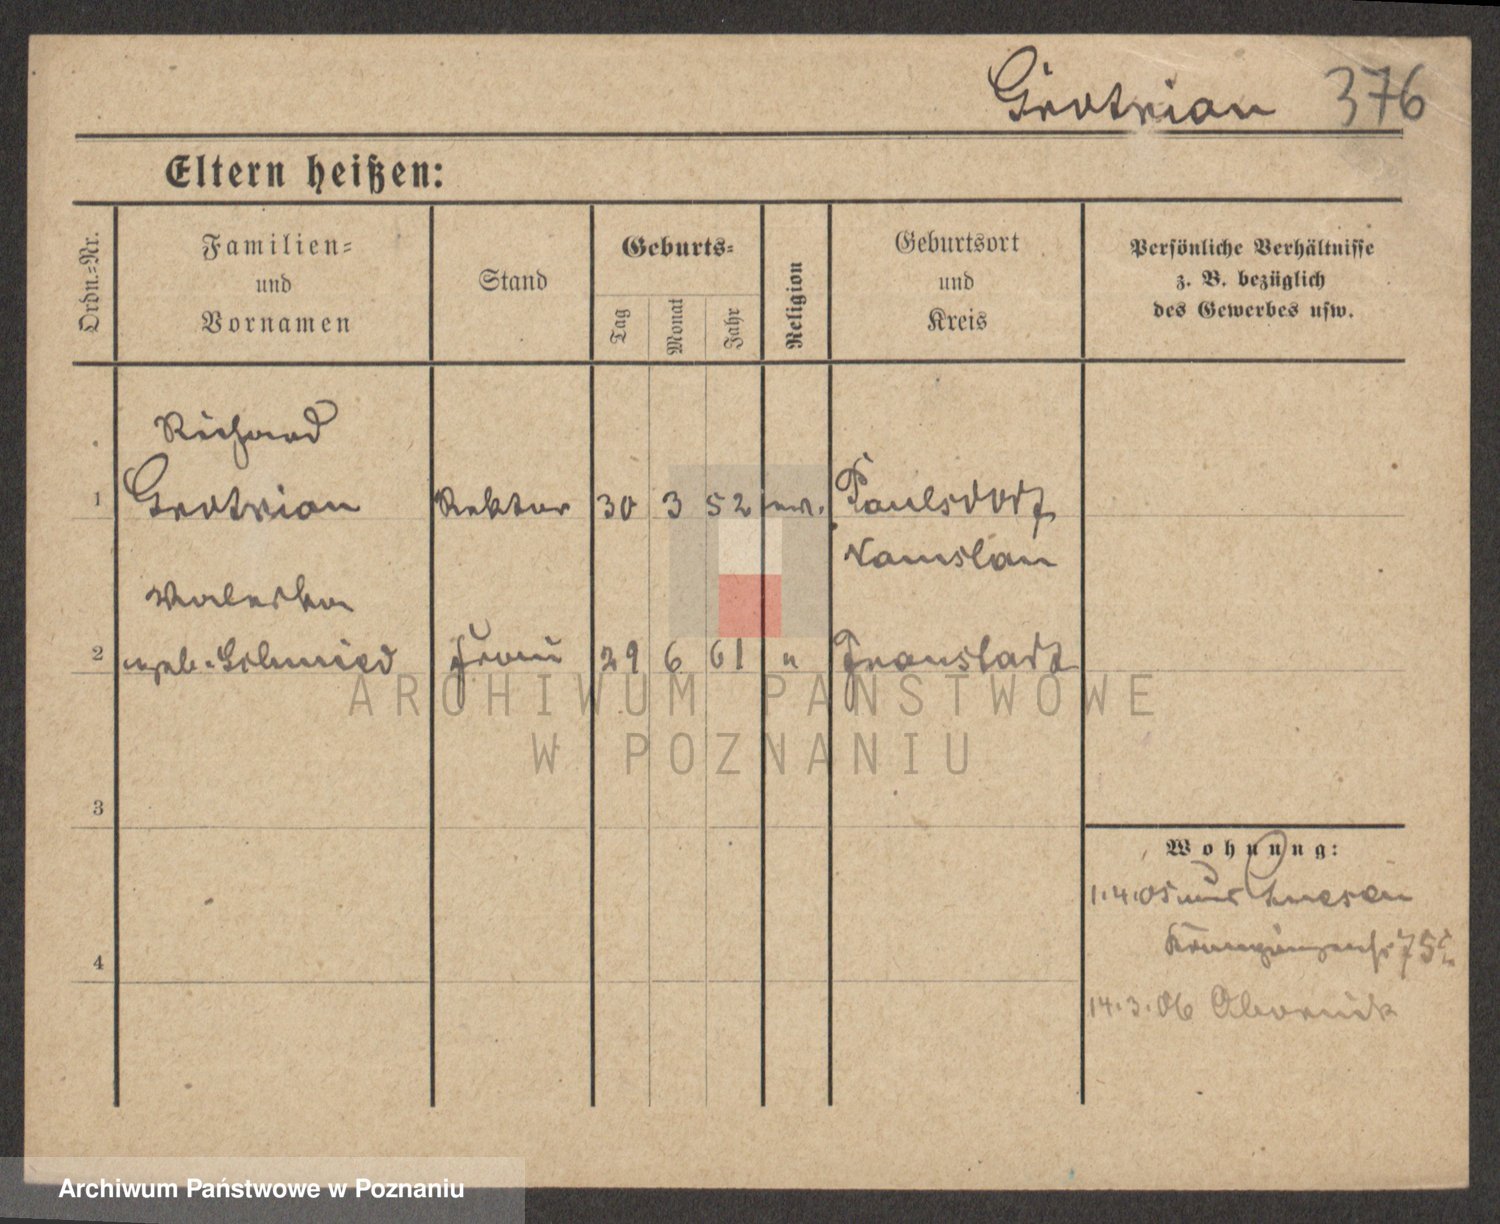 Grotrian 376
Eltern heißen:
Ordn.=Nr.
Familien=
und
Vornamen
Stand
Geburts=
Tag
Monat
Jahr
Religion
Geburtsort
und
Kreis
Persönliche Verhältnisse
z. B. bezüglich
des Gewerbes usw.
Richard
1 Grotrian Rektor 30 3 52 ev. Paulsdorf
Namslau
Valeska
2 geb. Schmied Frau 29 6 61 " Fraustadt
3
4
Wohnung:
1.4.05 aus Gnesen
14.3.06 Obornik
ARCHIWUM PAŃSTWOWE
W POZNANIU
Archiwum Państwowe w Poznaniu